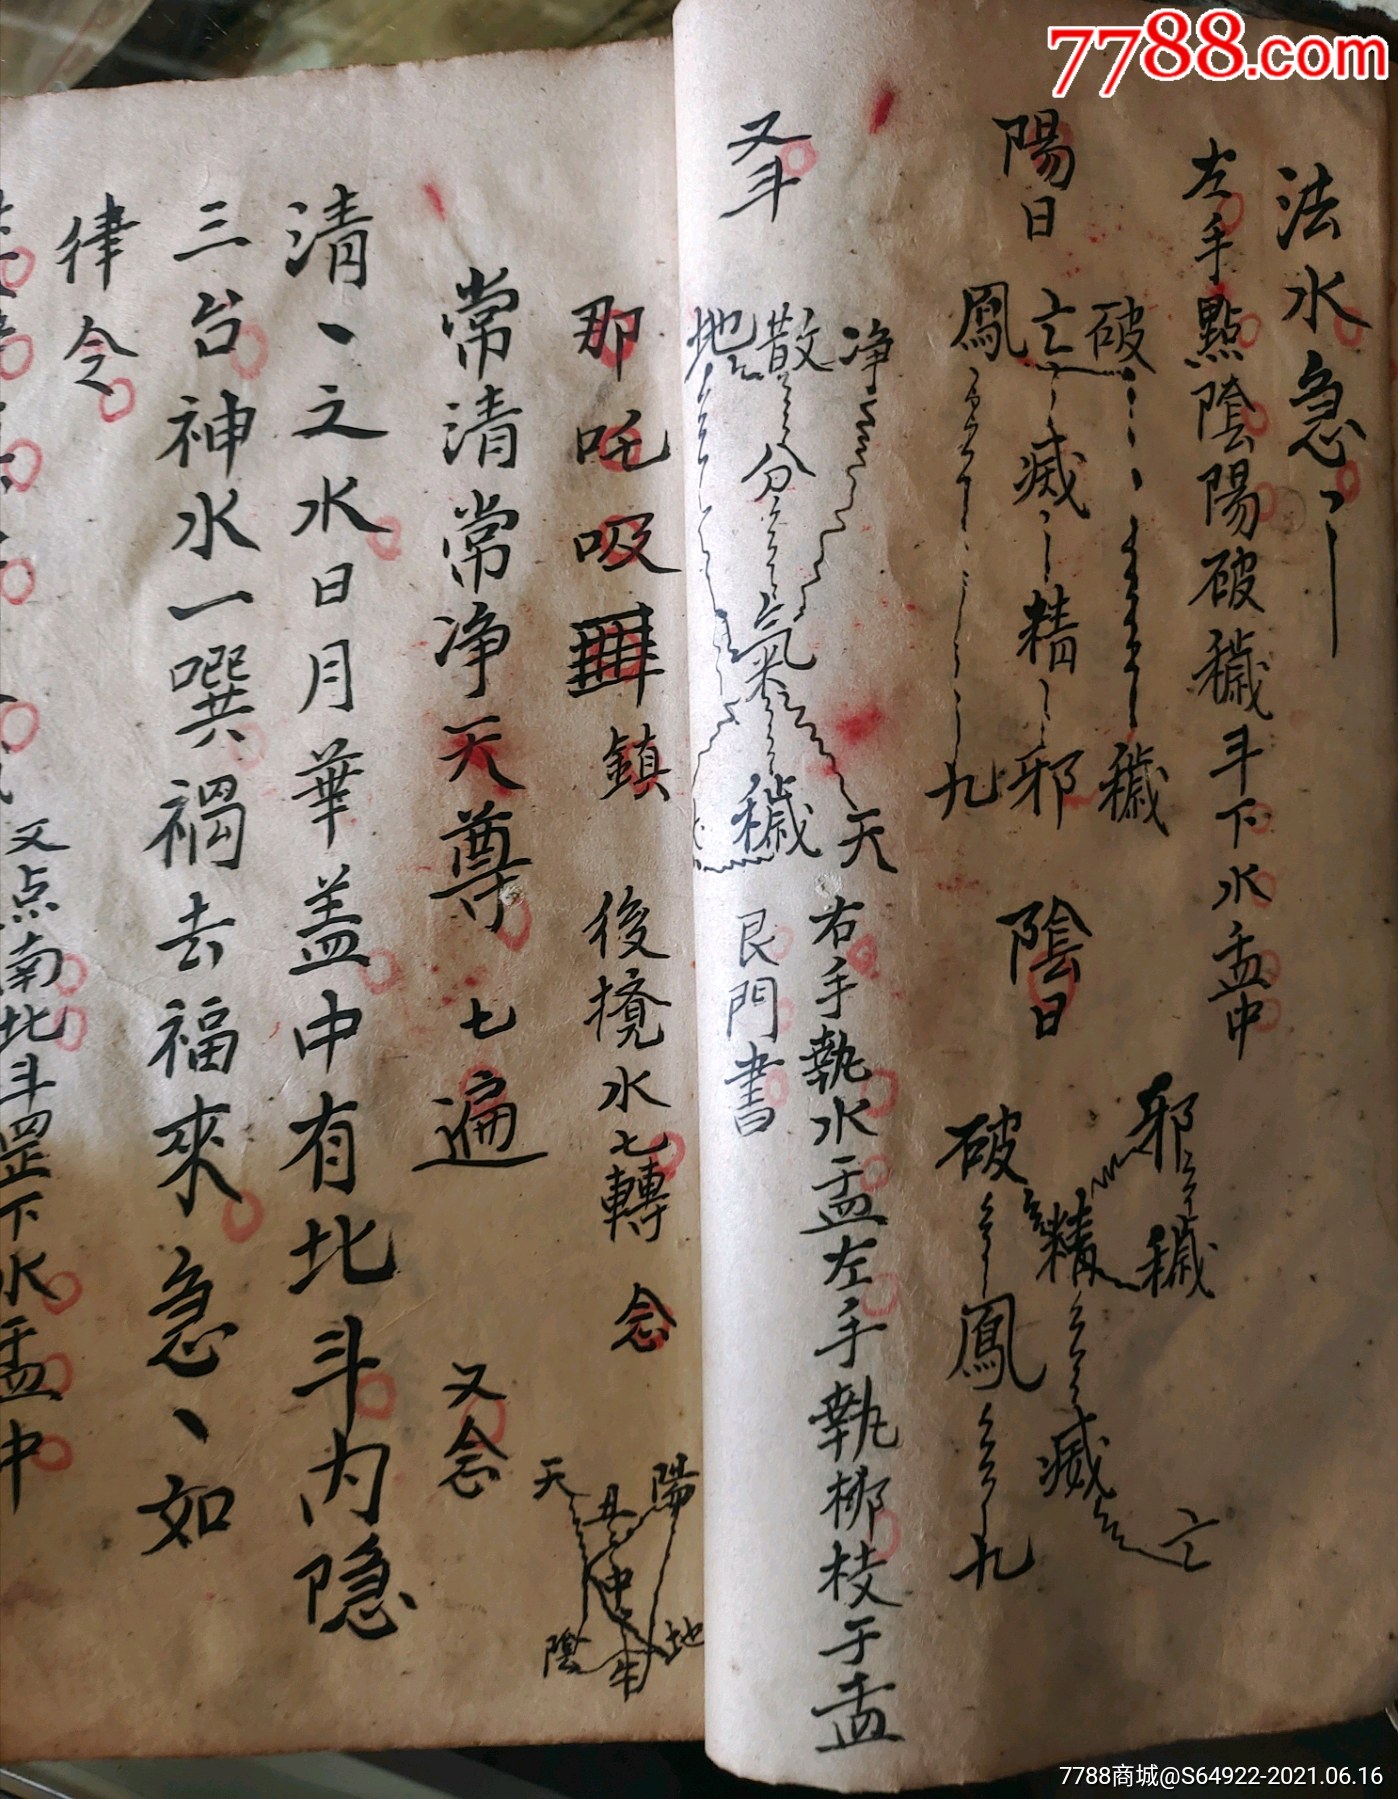 7788.com
法水急
左手點陰陽破穢斗下水盂中
陽日
破穢
亡滅精邪
鳳九
陰日
邪穢
精滅亡
破鳳九
又斗
净天
散分氣穢
地
右手執水盂左手執柳枝于盂
艮門書
那吒吸𠕋鎮
後撓水七轉
念
常清常净天尊
七遍
又念
陽
丑
天
中
陰
牛
地
清丶之水日月華盖中有北斗内隐
三台神水一噀禍去福來急丶如
律令
又点南北斗罡下水盂中
7788商城@S64922-2021.06.16